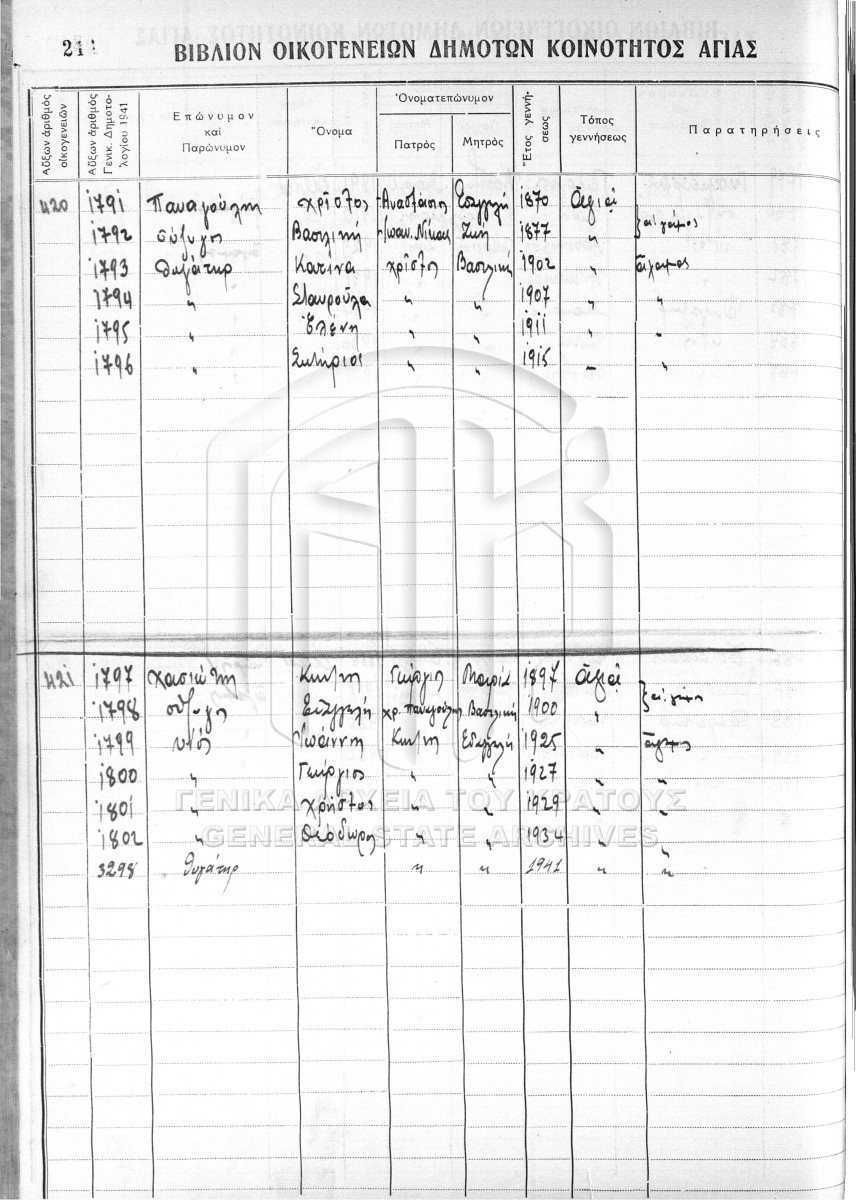 ΒΙΒΛΙΟΝ ΟΙΚΟΓΕΝΕΙΩΝ ΔΗΜΟΤΩΝ ΚΟΙΝΟΤΗΤΟΣ ΑΓΙΑΣ
Αὔξων ἀριθμός οἰκογενειῶν
Αὔξων ἀριθμός Γενικ. Δημοτολογίου 1941
Ἐπώνυμον καί Παρώνυμον
Ὄνομα
Ὀνοματεπώνυμον
Πατρός
Μητρός
Ἔτος γεννήσεως
Τόπος γεννήσεως
Παρατηρήσεις
420 1791 Παναγούλης Χρῖστος Ἀναστασίου 1870 Ἁγιᾷ
1792 σύζυγος Βασιλική Ἰωαν. Ζωή 1877 〃
1793 θυγάτηρ Κατίνα Χρῖστος Βασιλική 1902 〃 ἄγαμος
1794 〃 Σταυρούλα 〃 〃 1907 〃 〃
1795 〃 Ἑλένη 〃 〃 1911 〃 〃
1796 〃 Σωτήριος 〃 〃 1915 〃 〃
421 1797 Χασιώτης Κων/νος Γεώργιος Μαρία 1897 Ἁγιᾷ
1798 σύζυγος Εὐαγγελή Χρ. Παναγούλης Βασιλική 1900 〃
1799 υἱός Ἰωάννης Κων/νος Εὐαγγελή 1925 〃 ἄγαμος
1800 〃 Γεώργιος 〃 〃 1927 〃 〃
1801 〃 Χρῆστος 〃 〃 1929 〃 〃
1802 〃 Θεόδωρος 〃 〃 1934 〃 〃
3298 θυγάτηρ 〃 〃 1941 〃 〃
ΓΕΝΙΚΑ ΑΡΧΕΙΑ ΤΟΥ ΚΡΑΤΟΥΣ
GENERAL STATE ARCHIVES